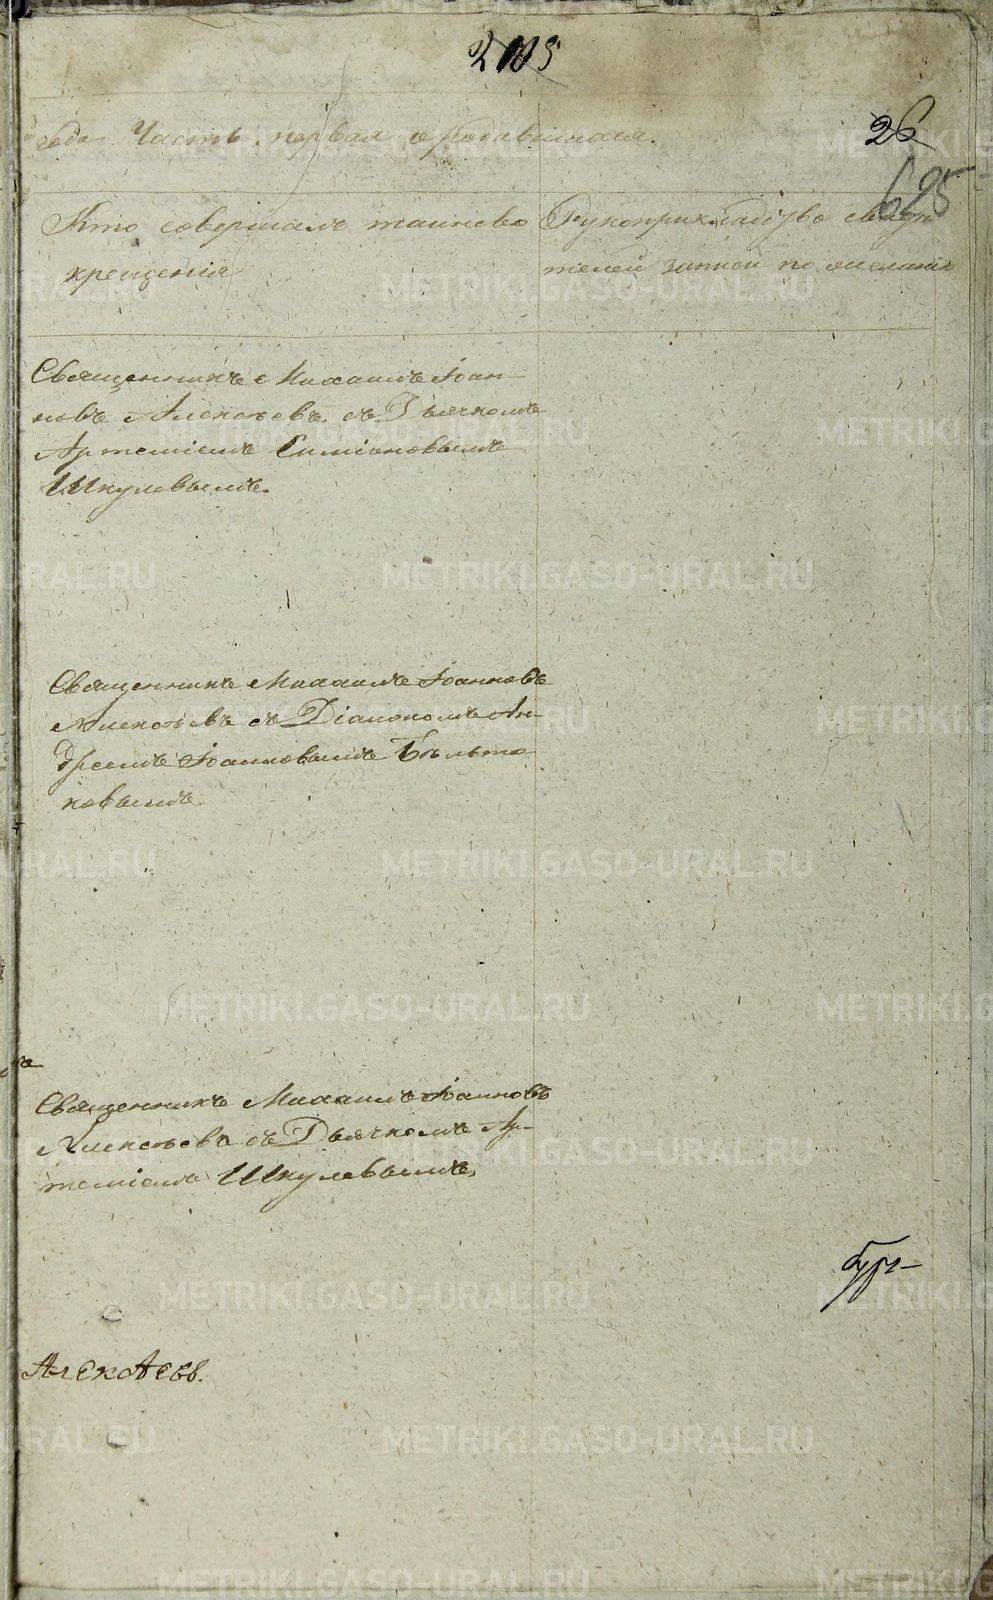 205
26
625
года Часть первая о родившихся.
Кто совершалъ таинство
крещенія
Рукоприкладство свидѣ
телей записи по желанію
Священникъ Михаилъ Іоан-
новъ Алексѣевъ съ Дьячкомъ
Артеміемъ Симіоновымъ
Шкулевымъ.
Священникъ Михаилъ Іоанновъ
Алексѣевъ съ Діакономъ Ан-
дреемъ Іоанновымъ Бѣльте
ковымъ
Священникъ Михаилъ Іоанновъ
Алексѣевъ съ Дьячкомъ Ар-
теміемъ Шкулевымъ.
бург-
Алексѣевъ.
METRIKI.GASO-URAL.RU